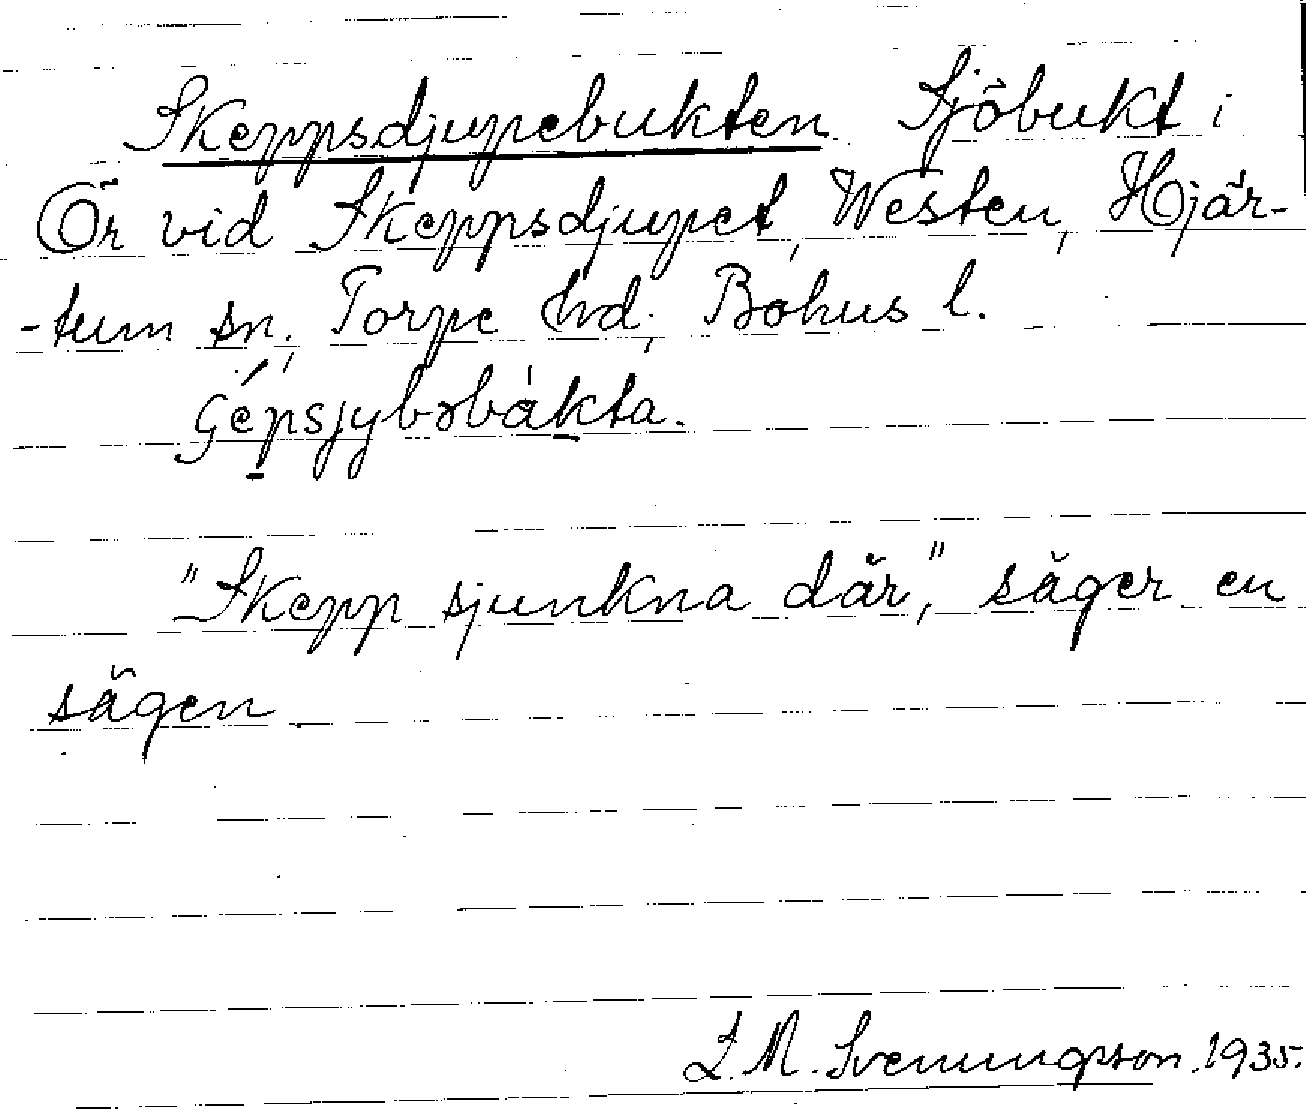 Skeppsdjupebukten Sjöbukt i
Ör vid Skeppsdjupet, Westen, Hjär-
-tum sn, Torpe hd, Bohus l.
"Skepp sjunkna där", säger en
sägen
L. M. Svenungsson. 1935.